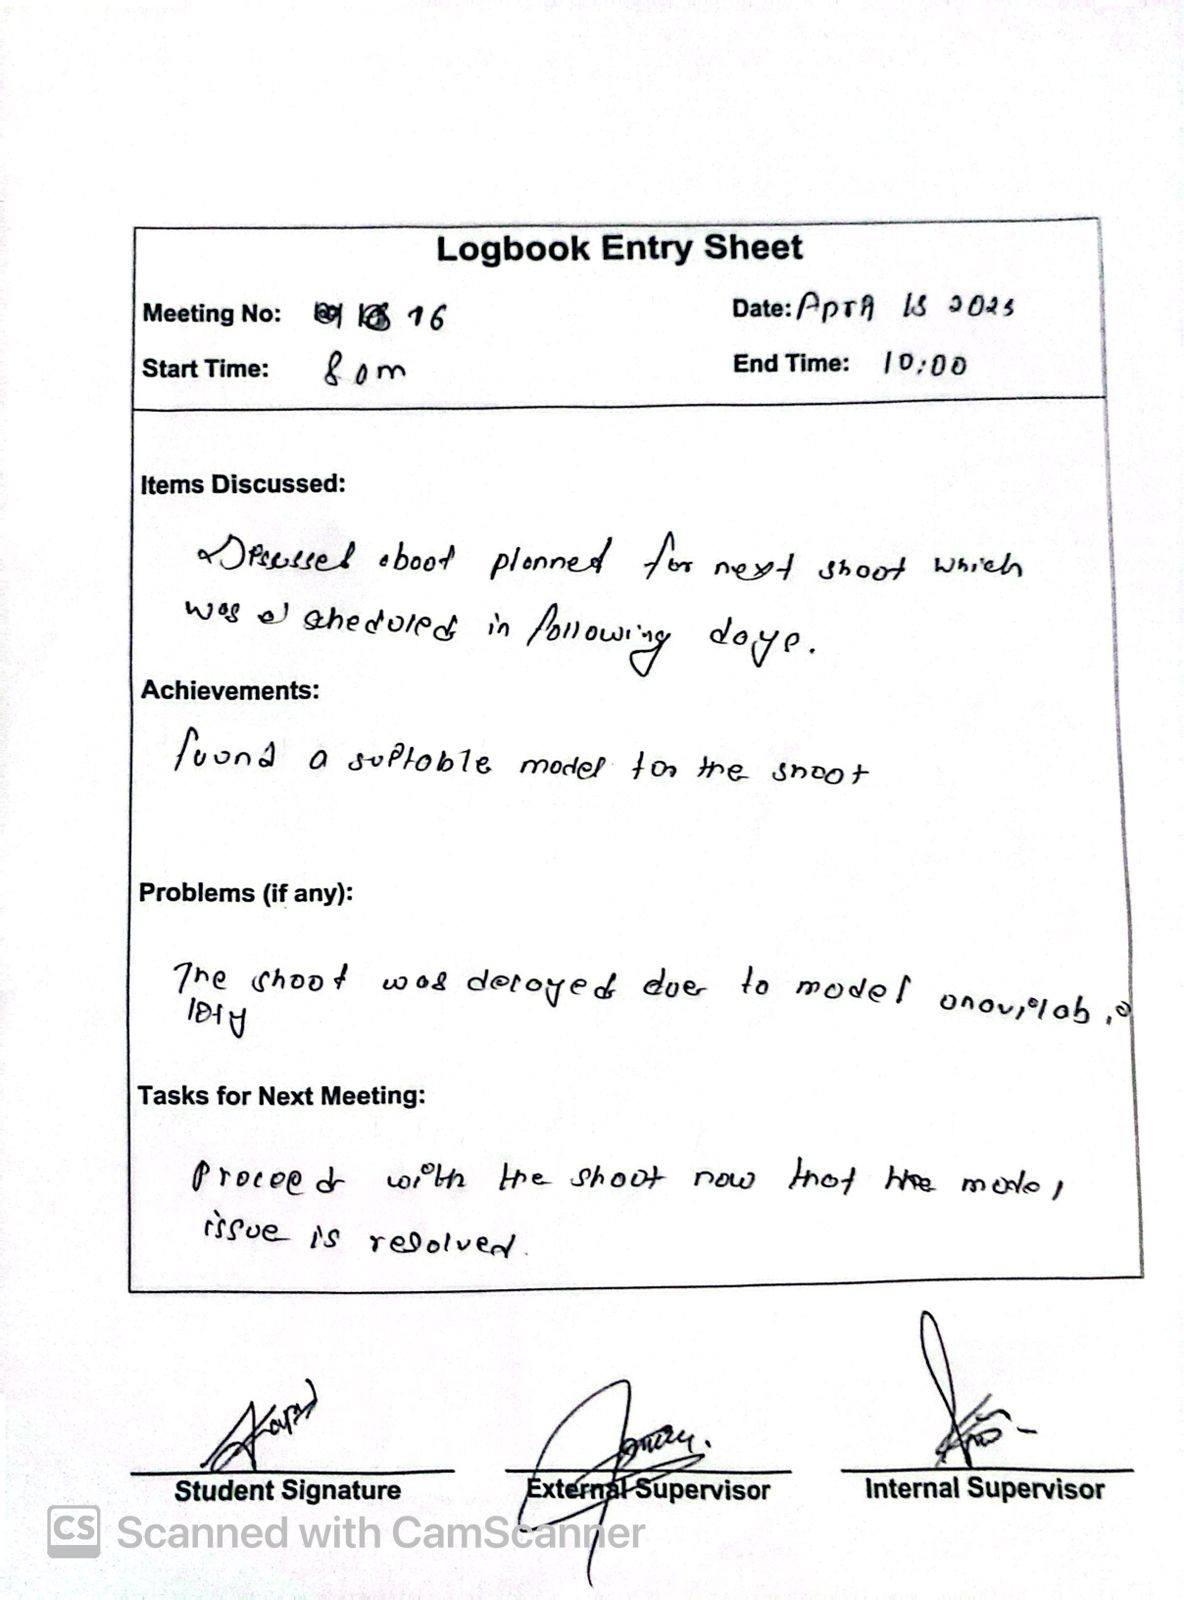 Logbook Entry Sheet
Meeting No: 16
Date: April 15 2025
Start Time: 8 am
End Time: 10:00
Items Discussed:
Discussed about planned for next shoot which
was scheduled in following days.
Achievements:
found a suitable model for the shoot
Problems (if any):
The shoot was delayed due to model
Tasks for Next Meeting:
Proceed with the shoot now that the model
issue is resolved.
Student Signature
External Supervisor
Internal Supervisor
CS Scanned with CamScanner